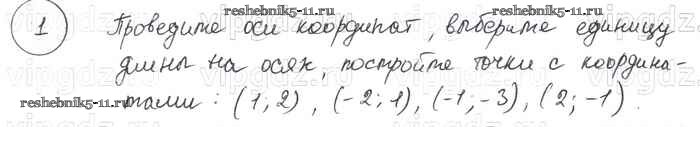 reshebnik5-11.ru reshebnik5-11.ru
1 Проведите оси координат, выберите единицу
длины на осях, постройте точки с координа-
reshebnik5-11.ru тами: (1; 2), (-2; 1), (-1; -3), (2; -1).